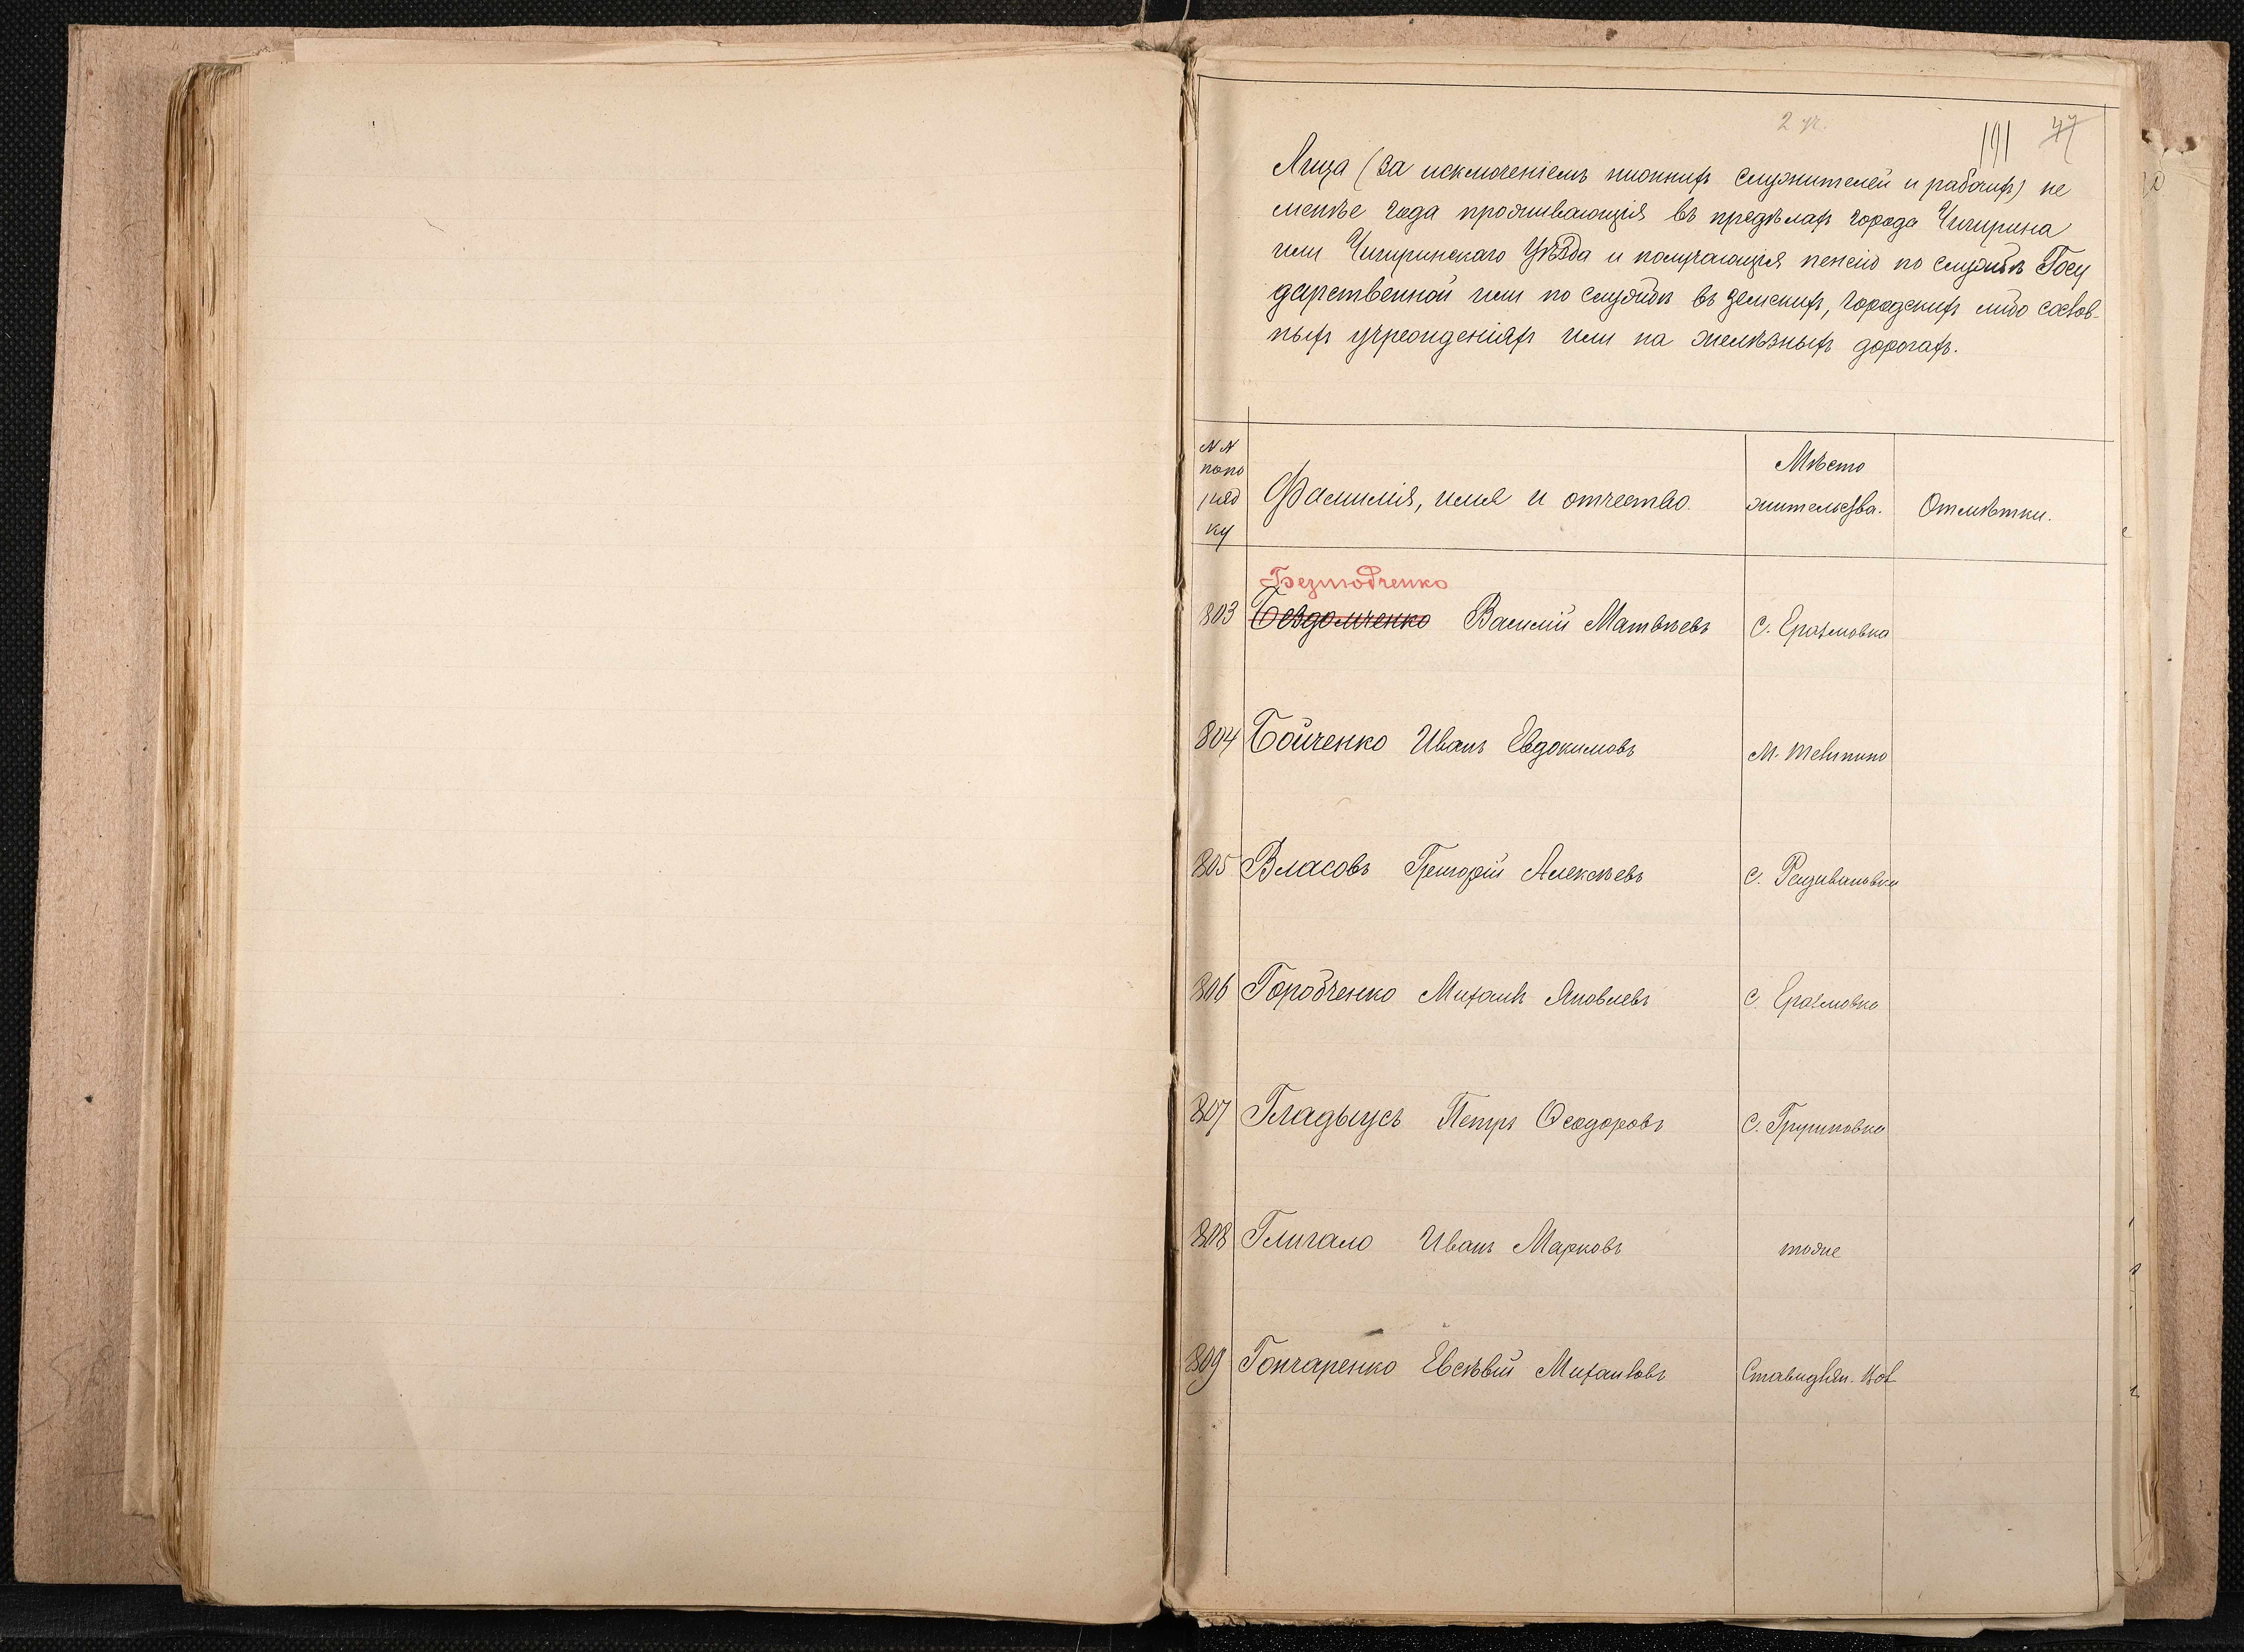 2 уч.
191 47
Лица (за исключеніемъ нижнихъ служителей и рабочихъ) не
менѣе года проживающія въ предѣлахъ города Чигирина
или Чигиринскаго Уѣзда и получающія пенсію по службѣ Госу
дарственной или по службѣ въ земскихъ, городскихъ либо сослов-
ныхъ учрежденіяхъ или на желѣзныхъ дорогахъ.
№№ Мѣсто
попо
ряд Фамилія, имя и отчество. жительства. Отмѣтки.
ку
Безлюдченко
803 Бездомченко Василій Матвѣевъ с. Еразмовка
804 Бойченко Иванъ Евдокимовъ м. Телепино
805 Власовъ Григорій Алексѣевъ с. Рейдивановка
806 Горобченко Михаилъ Яковлевъ с. Еразмовка
807 Гладыусъ Петръ Ѳеодоровъ с. Грушковка
808 Глигало Иванъ Марковъ тоже
809 Гончаренко Евсѣвій Михаиловъ Ставидлян. Вол